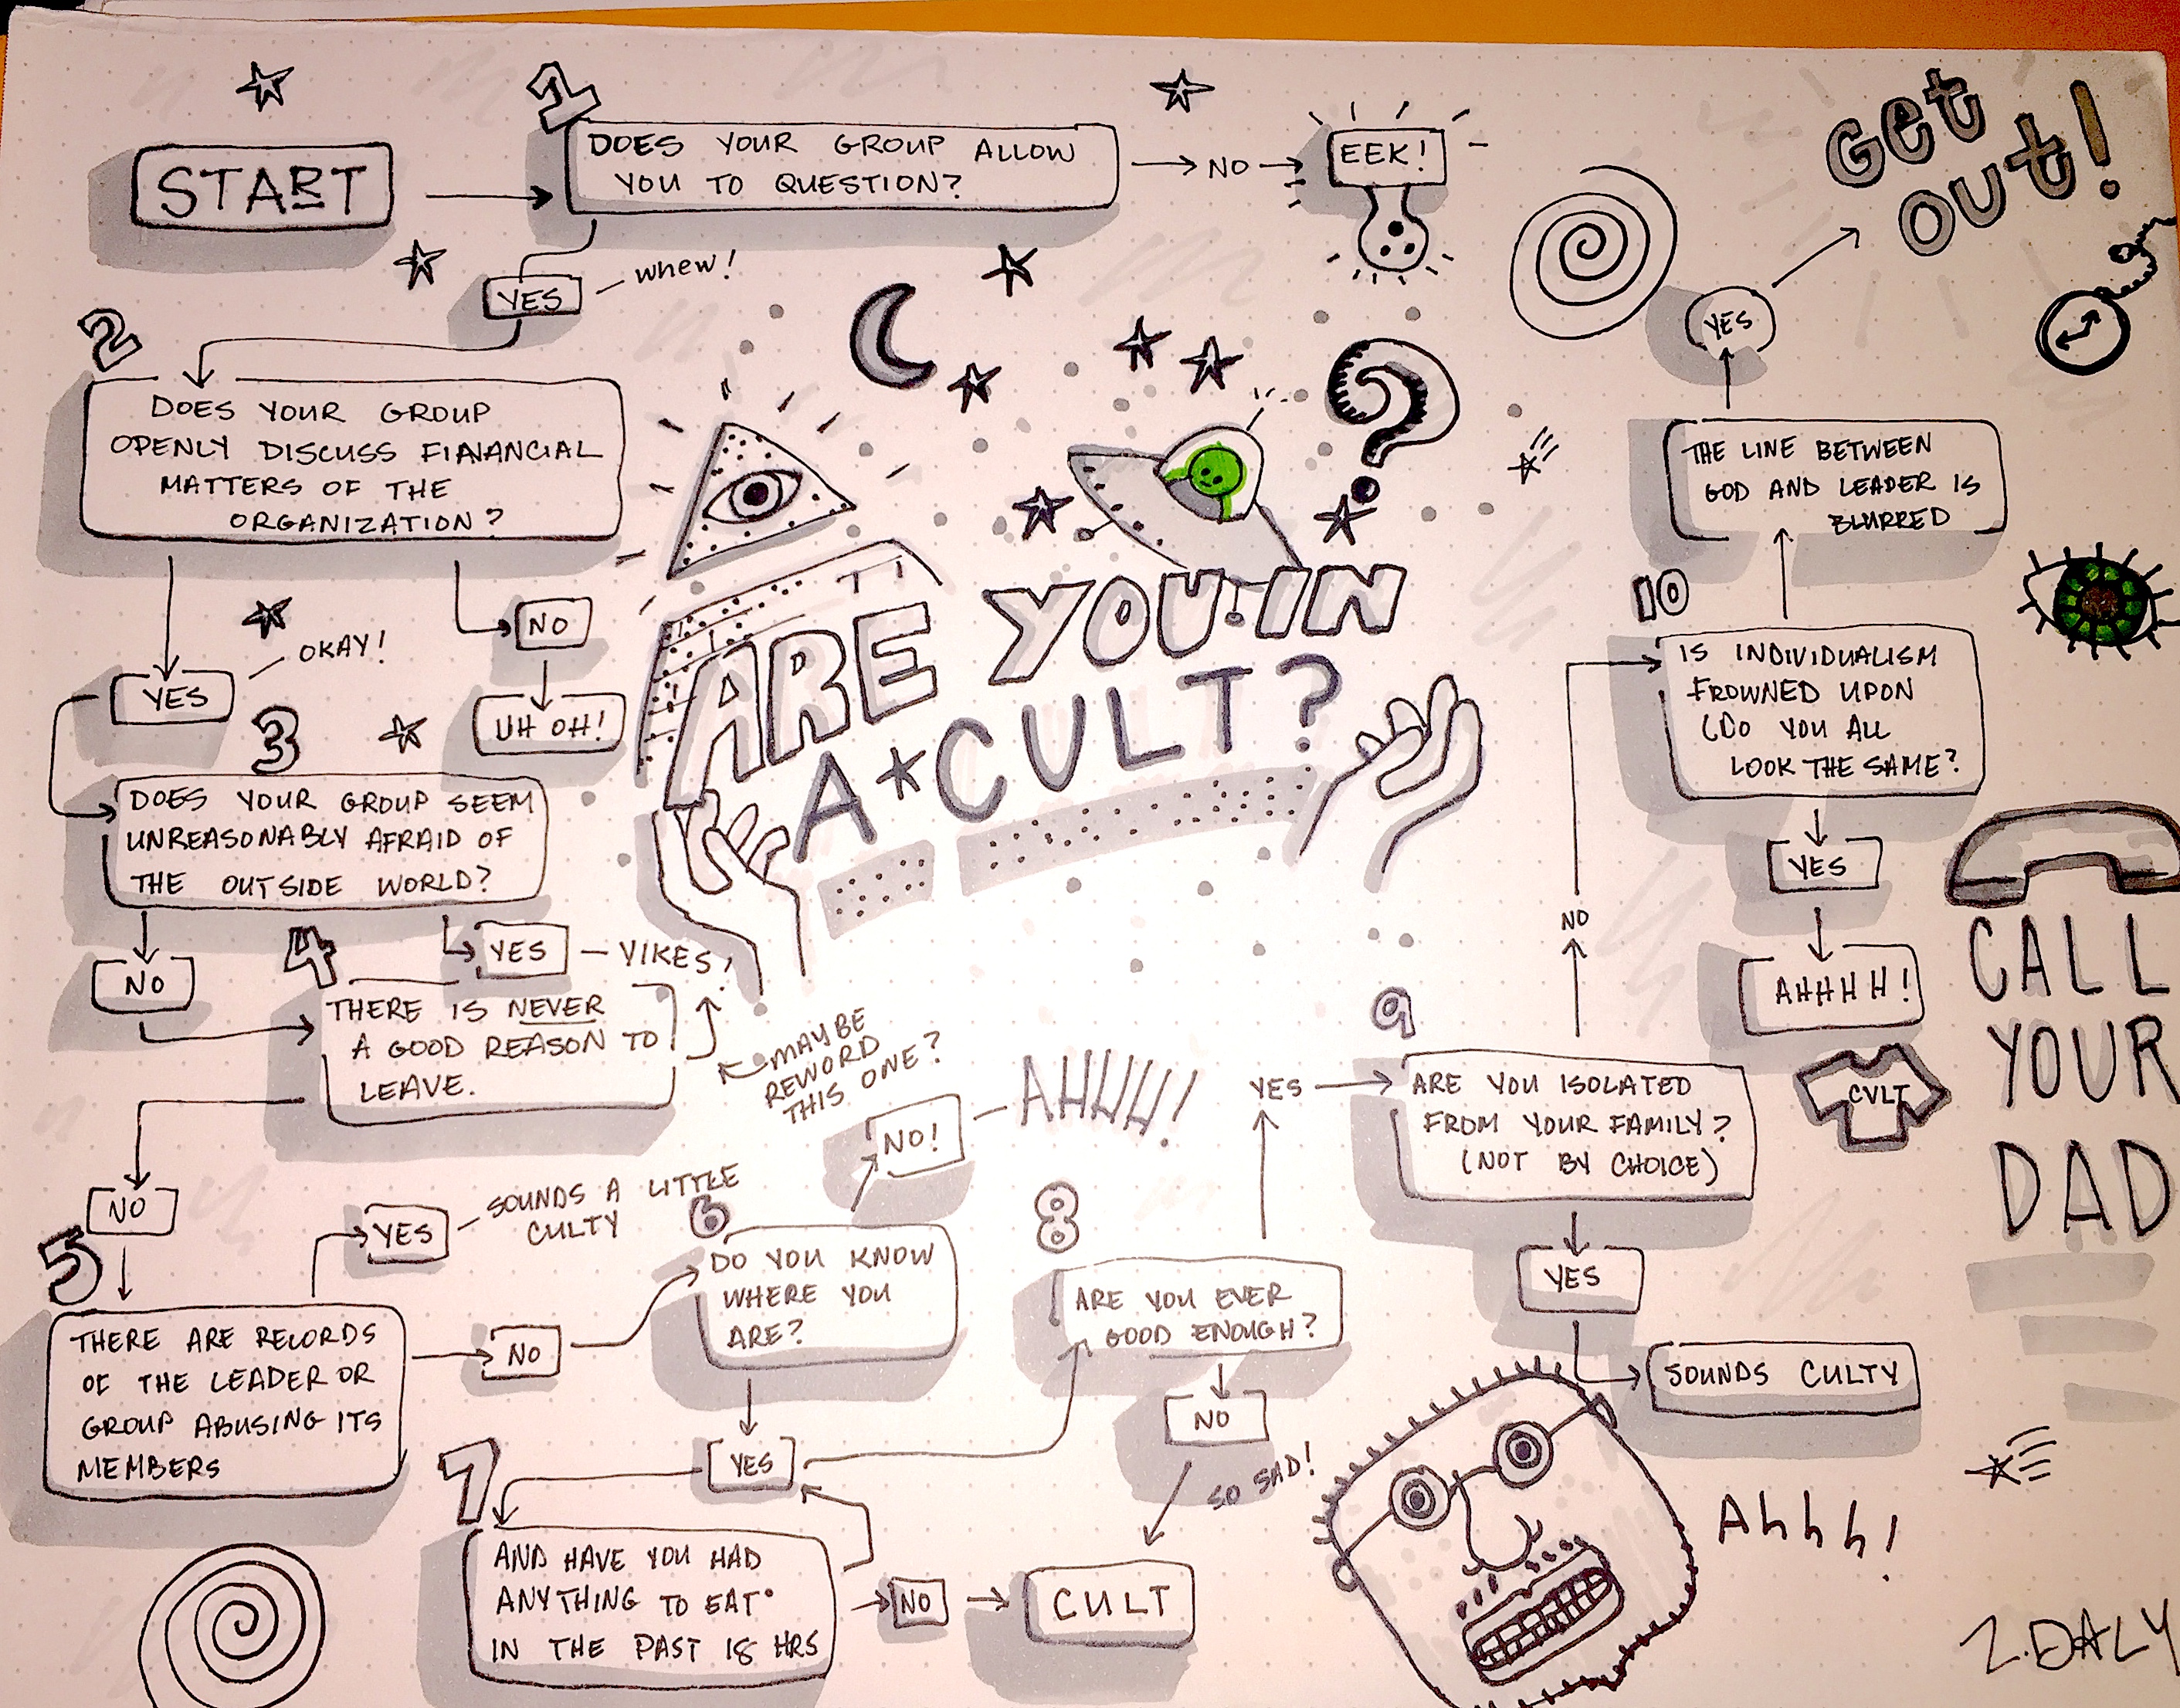 START
1
DOES YOUR GROUP ALLOW
YOU TO QUESTION?
NO
EEK!
YES
whew!
2
DOES YOUR GROUP
OPENLY DISCUSS FINANCIAL
MATTERS OF THE
ORGANIZATION?
NO
UH OH!
YES
OKAY!
3
DOES YOUR GROUP SEEM
UNREASONABLY AFRAID OF
THE OUTSIDE WORLD?
YES
YIKES!
NO
4
THERE IS NEVER
A GOOD REASON TO
LEAVE.
MAYBE
REWORD
THIS ONE?
NO
5
THERE ARE RECORDS
OF THE LEADER OR
GROUP ABUSING ITS
MEMBERS
YES
SOUNDS A LITTLE
CULTY
NO
6
DO YOU KNOW
WHERE YOU
ARE?
NO!
AHHH!
YES
7
AND HAVE YOU HAD
ANYTHING TO EAT
IN THE PAST 18 HRS
NO
CULT
8
ARE YOU EVER
GOOD ENOUGH?
NO
SO SAD!
YES
9
ARE YOU ISOLATED
FROM YOUR FAMILY?
(NOT BY CHOICE)
YES
SOUNDS CULTY
NO
10
IS INDIVIDUALISM
FROWNED UPON
(DO YOU ALL
LOOK THE SAME?
YES
AHHHH!
THE LINE BETWEEN
GOD AND LEADER IS
BLURRED
YES
Get
out!
ARE YOU IN
A*CULT?
CVLT
CALL
YOUR
DAD
Ahhh!
Z.DALY